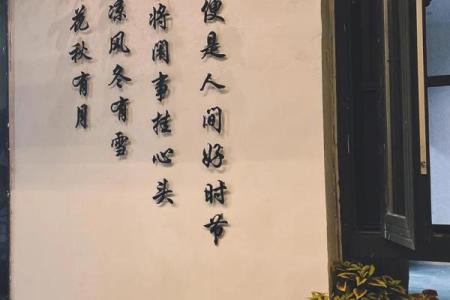 花秋有月
凉风冬有雪
将闲事挂心头
便是人间好时节